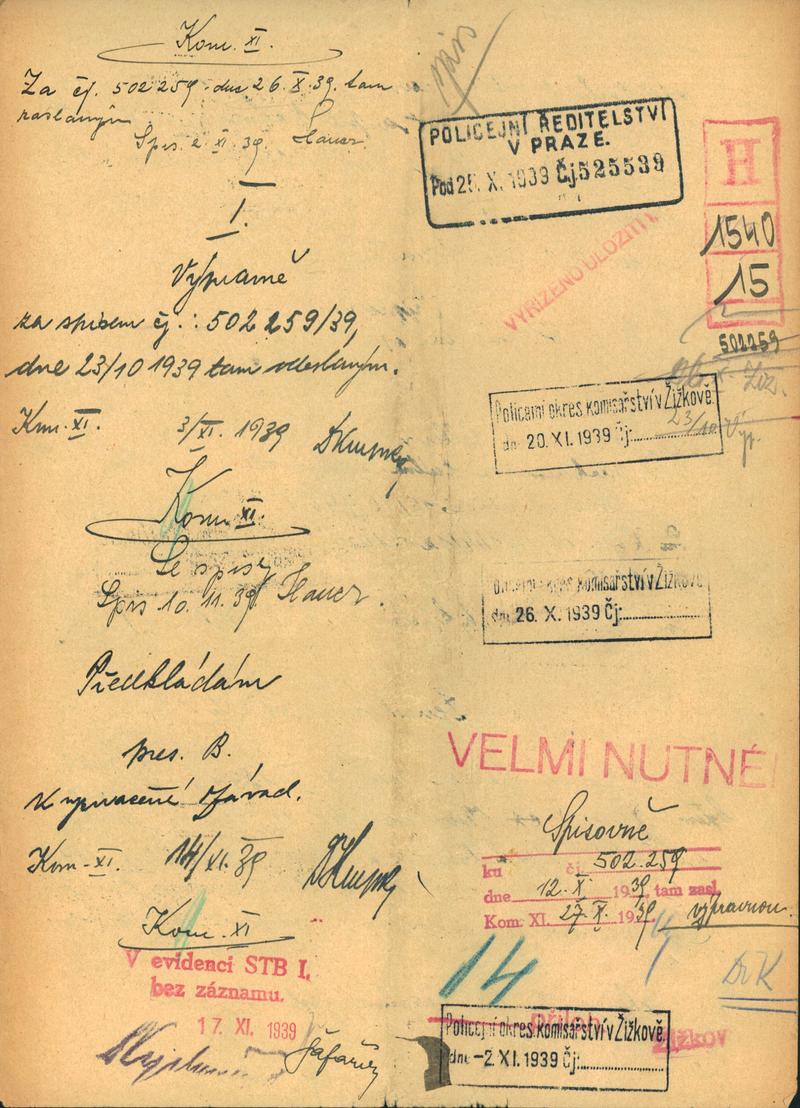 Kom. XI.
Za čj. 502259 dne 26. X. 39. tam
zaslaným
Spis. 2. XI. 39. Hauer
I.
Výpravně
za spisem čj.: 502259/39,
dne 23/10 1939 tam odeslaným.
Kom. XI. 3/XI. 1939
Kom. XI.
Se spisy
Spis 10. 11. 39 Hauer.
Předkládám
pres. B.
k vyvrácení závad.
Kom. XI. 14/XI. 39
Kom. XI
V evidenci STB I.
bez záznamu.
17. XI. 1939
spis
POLICEJNÍ ŘEDITELSTVÍ
V PRAZE.
Pod 25. X. 1939 Čj. 525539
H
1540
15
VYŘÍZENO ULOŽITI!
502259
26. X. Žiž.
Policejní okres. komisařství v Žižkově
dne 20. XI. 1939 Čj:
23/10 Vyp.
Policejní okres. komisařství v Žižkově
dne 26. X. 1939 Čj:
VELMI NUTNÉ!
Spisovně
ku čj. 502.259
dne 12. X 1939, tam zasl.
Kom. XI. 27. X. 1939 výpravnou.
14
Dr K
příloh
Žižkov
Policejní okres. komisařství v Žižkově
dne -2. XI. 1939 Čj: